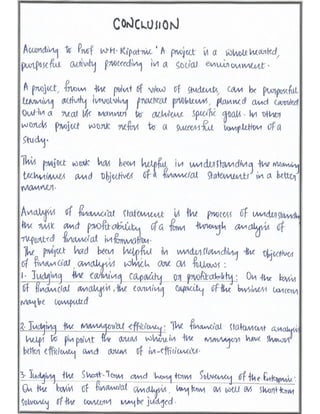 CONCLUSION
According to Prof W.H. Kipatric 'A project is a whole hearted,
purposeful activity proceeding in a social environment.
A project, from the point of view of students, can be purposeful
learning activity involving practical problems, planned and carried
out in a real life manner to achieve specific goals. In other
words project work refers to a successful completion of a
study.
This project work has been helpful in understanding the meaning
techniques and objectives of a financial statements in a better
manner.
Analysis of financial statement is the process of understanding
the risk and profitability of a firm through analysis of
reported financial information.
The project had been helpful in understanding the objectives
of financial analysis which are as follows:
1. Judging the earning capacity or profitability: On the basis
of financial analysis, the earning capacity of the business concern
may be computed
2. Judging the managerial efficiency: The financial statement analysis
help to pinpoint the areas wherein the managers have shown
better efficiency and areas of in-efficiencies.
3. Judging the Short-Term and Long term Solvency of the Enterprise:
On the basis of financial analysis, long term as well as short term
solvency of the concern may be judged.